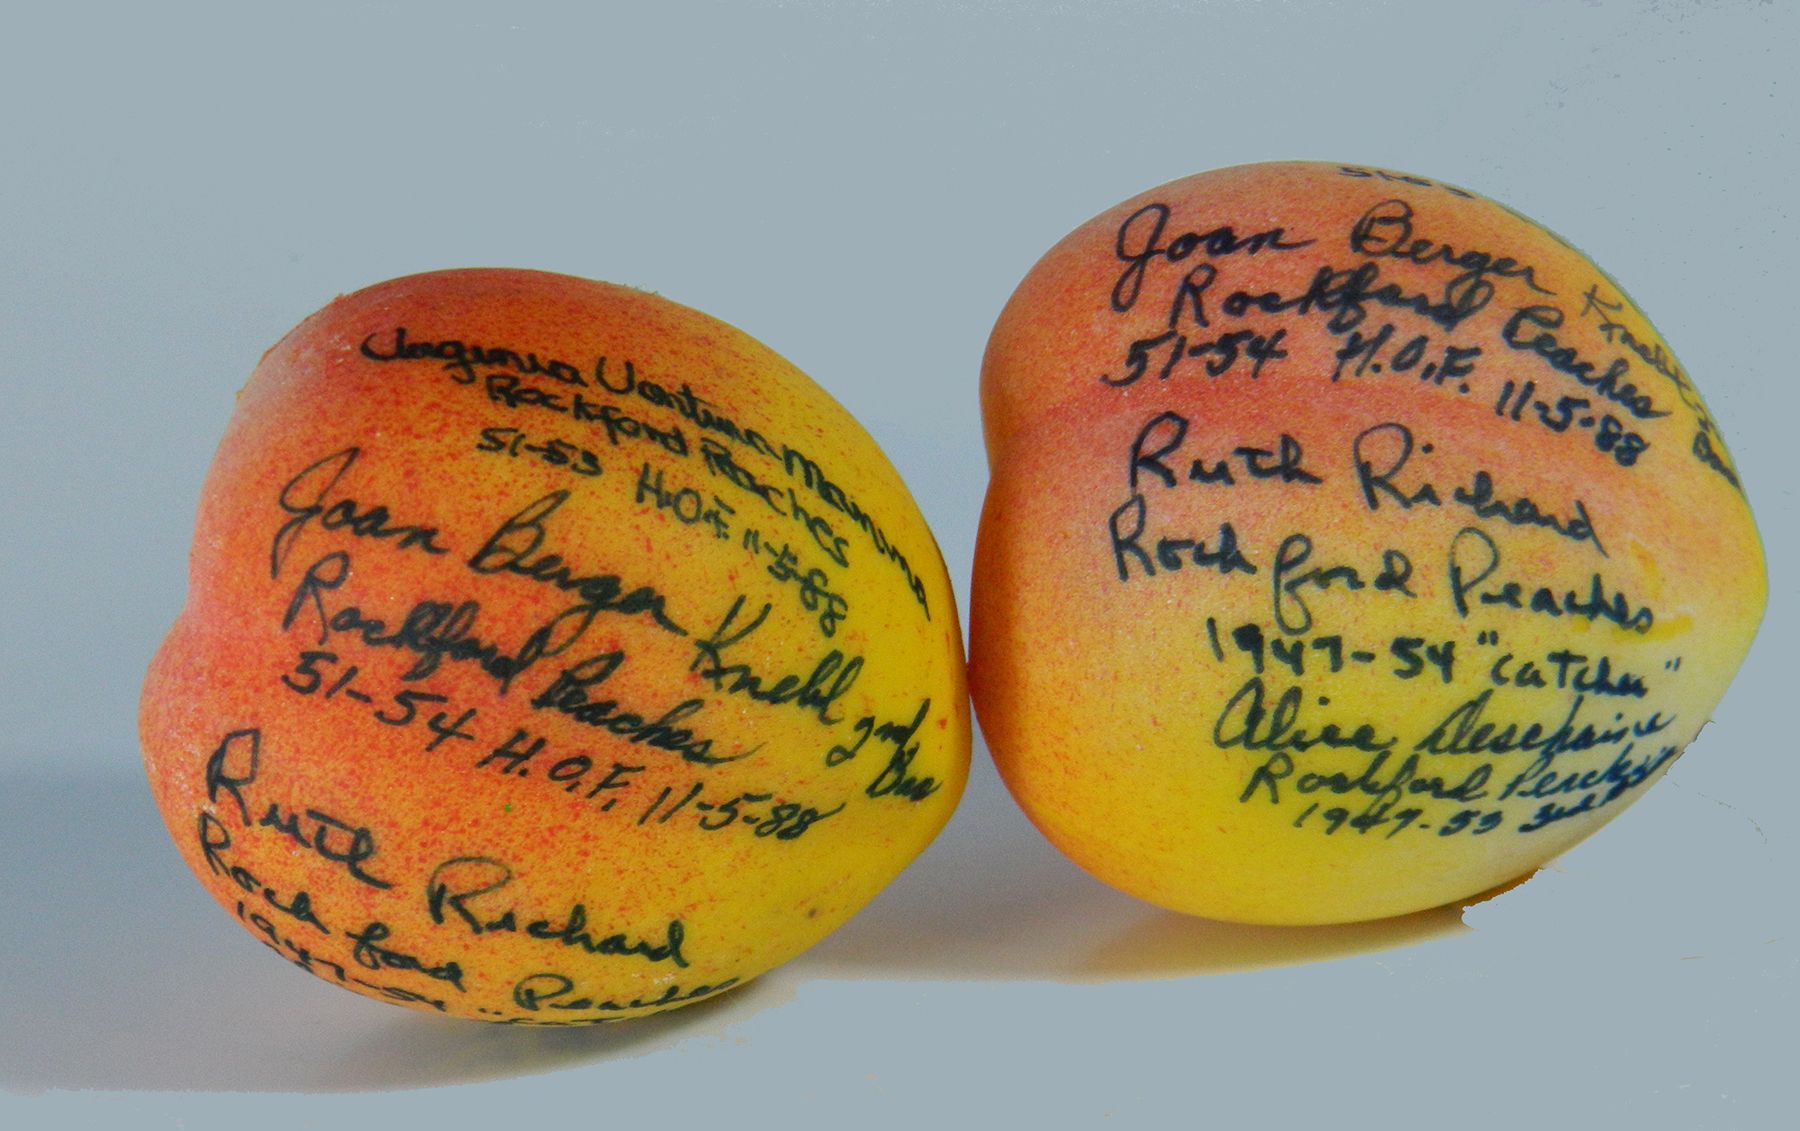 Virginia Ventura Manina
Rockford Peaches
51-53 H.O.F. 11-5-88
Joan Berger Knebl 2nd
Rockford Peaches
51-54 H.O.F. 11-5-88
Ruth Richard
Rockford Peaches
1947-54 "
51-53
Joan Berger
Rockford Peaches
51-54 H.O.F. 11-5-88
Ruth Richard
Rockford Peaches
1947-54 "catcher"
Alice Deschaine
Rockford
1947-53